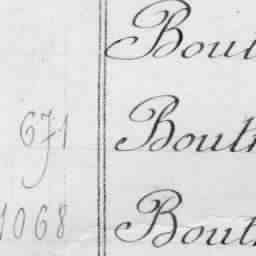 Bout
671 Bouth
1068 Bouth